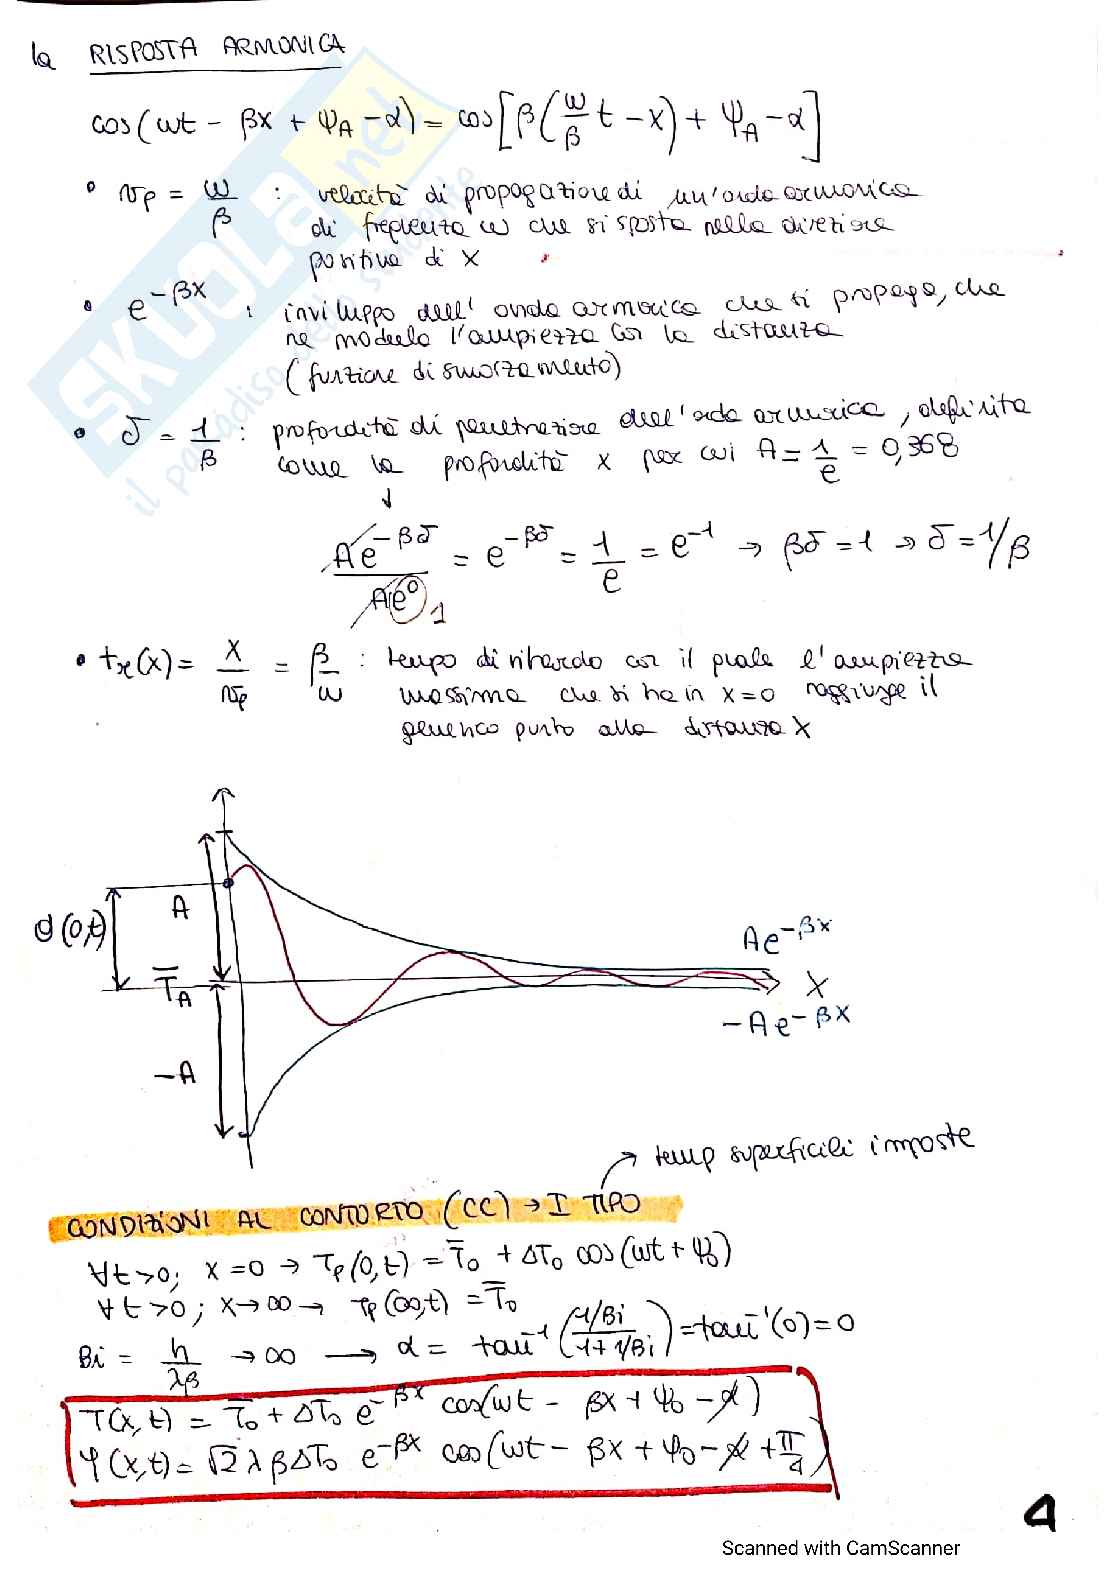 la RISPOSTA ARMONICA
cos(ωt - βx + ψA - α) = cos[β(ω/β t - x) + ψA - α]
• vp = ω/β : velocità di propagazione di un'onda armonica
di frequenza ω che si sposta nella direzione
positiva di x
• e^-βx : inviluppo dell'onda armonica che si propaga, che
ne modula l'ampiezza con la distanza
(funzione di smorzamento)
• δ = 1/β : profondità di penetrazione dell'onda armonica, definita
come la profondità x per cui A = 1/e = 0,368
↓
Ae^-βδ / Ae^0 1 = e^-βδ = 1/e = e^-1 → βδ = 1 → δ = 1/β
• tr(x) = x/vp = β/ω : tempo di ritardo con il quale l'ampiezza
massima che si ha in x=0 raggiunge il
generico punto alla distanza x
A
θ(0,t)
T̄A
-A
Ae^-βx
x
-Ae^-βx
→ temp superficiali imposte
CONDIZIONI AL CONTORTO (CC) → I TIPO
∀t>0; x=0 → Tp(0,t) = T̄0 + ΔT0 cos(ωt + ψ0)
∀t>0; x→∞ → Tp(∞,t) = T̄0
Bi = h/λβ → ∞ → α = tan^-1 (1/Bi / 1+1/Bi) = tan^-1(0) = 0
T(x,t) = T̄0 + ΔT0 e^-βx cos(ωt - βx + ψ0 - α)
φ(x,t) = √2 λβΔT0 e^-βx cos(ωt - βx + ψ0 - α + π/4)
4
Scanned with CamScanner
SKUOLA.net
il paradiso dello studente